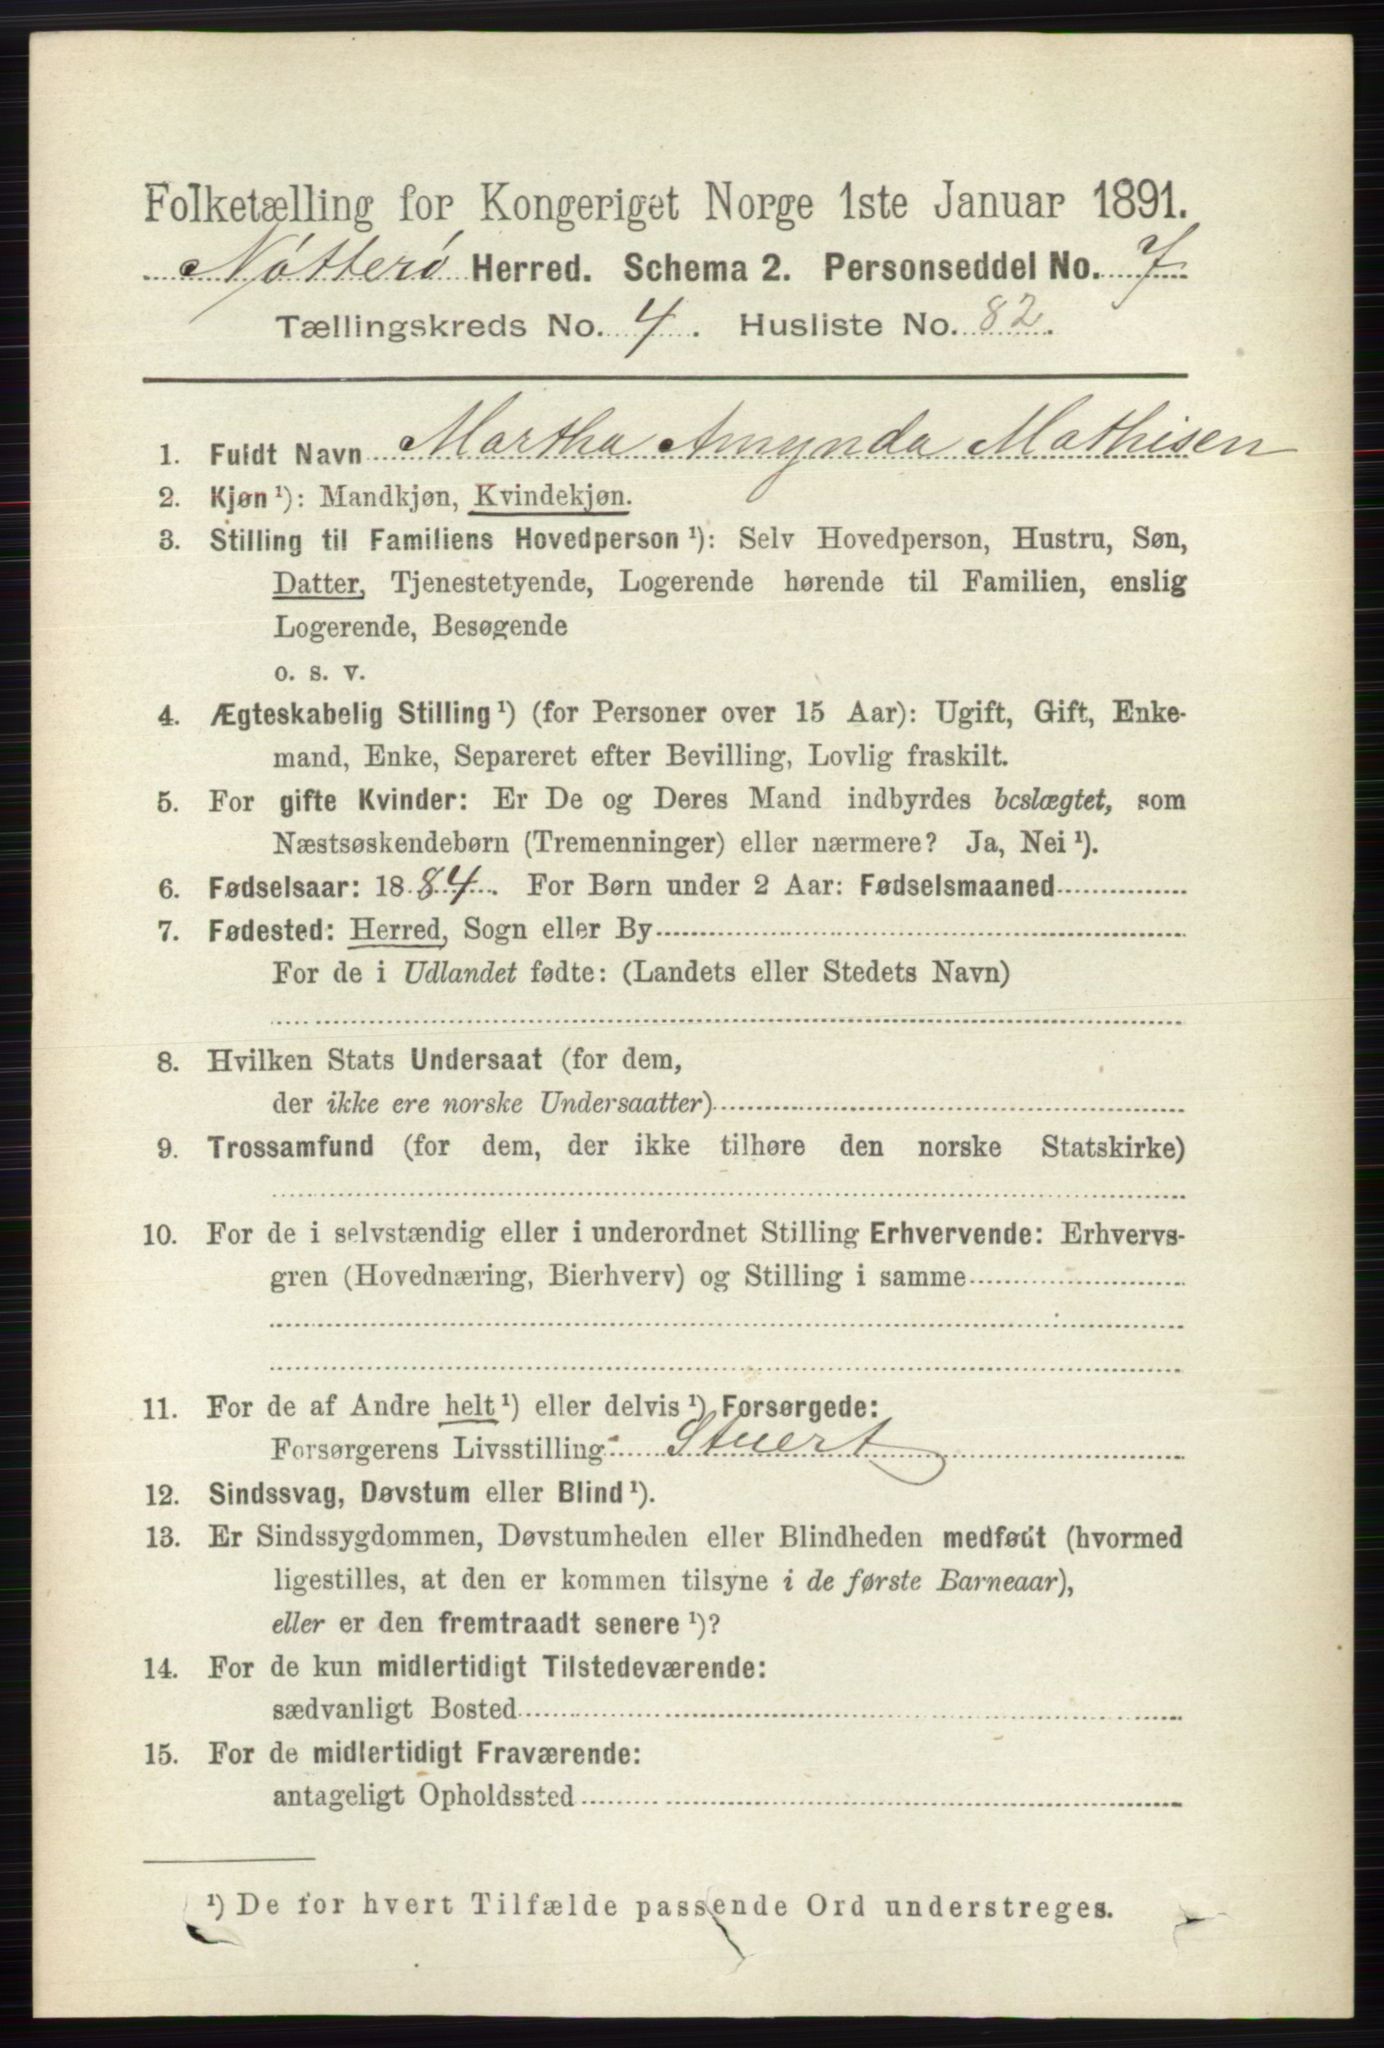 Folketælling for Kongeriget Norge 1ste Januar 1891.
Nøtterø Herred. Schema 2. Personseddel No. 7
Tællingskreds No. 4. Husliste No. 82.
1. Fuldt Navn Martha Amynda Mathisen
2. Kjøn ¹): Mandkjøn, Kvindekjøn.
3. Stilling til Familiens Hovedperson ¹): Selv Hovedperson, Hustru, Søn,
Datter, Tjenestetyende, Logerende hørende til Familien, enslig
Logerende, Besøgende
o. s. v.
4. Ægteskabelig Stilling ¹) (for Personer over 15 Aar): Ugift, Gift, Enke-
mand, Enke, Separeret efter Bevilling, Lovlig fraskilt.
5. For gifte Kvinder: Er De og Deres Mand indbyrdes beslægtet, som
Næstsøskendebørn (Tremenninger) eller nærmere? Ja, Nei ¹).
6. Fødselsaar: 1884. For Børn under 2 Aar: Fødselsmaaned
7. Fødested: Herred, Sogn eller By
For de i Udlandet fødte: (Landets eller Stedets Navn)
8. Hvilken Stats Undersaat (for dem,
der ikke ere norske Undersaatter)
9. Trossamfund (for dem, der ikke tilhøre den norske Statskirke)
10. For de i selvstændig eller i underordnet Stilling Erhvervende: Erhvervs-
gren (Hovednæring, Bierhverv) og Stilling i samme
11. For de af Andre helt ¹) eller delvis ¹) Forsørgede:
Forsørgerens Livsstilling Stuert
12. Sindssvag, Døvstum eller Blind ¹).
13. Er Sindssygdommen, Døvstumheden eller Blindheden medfødt (hvormed
ligestilles, at den er kommen tilsyne i de første Barneaar),
eller er den fremtraadt senere ¹)?
14. For de kun midlertidigt Tilstedeværende:
sædvanligt Bosted
15. For de midlertidigt Fraværende:
antageligt Opholdssted
¹) De for hvert Tilfælde passende Ord understreges.